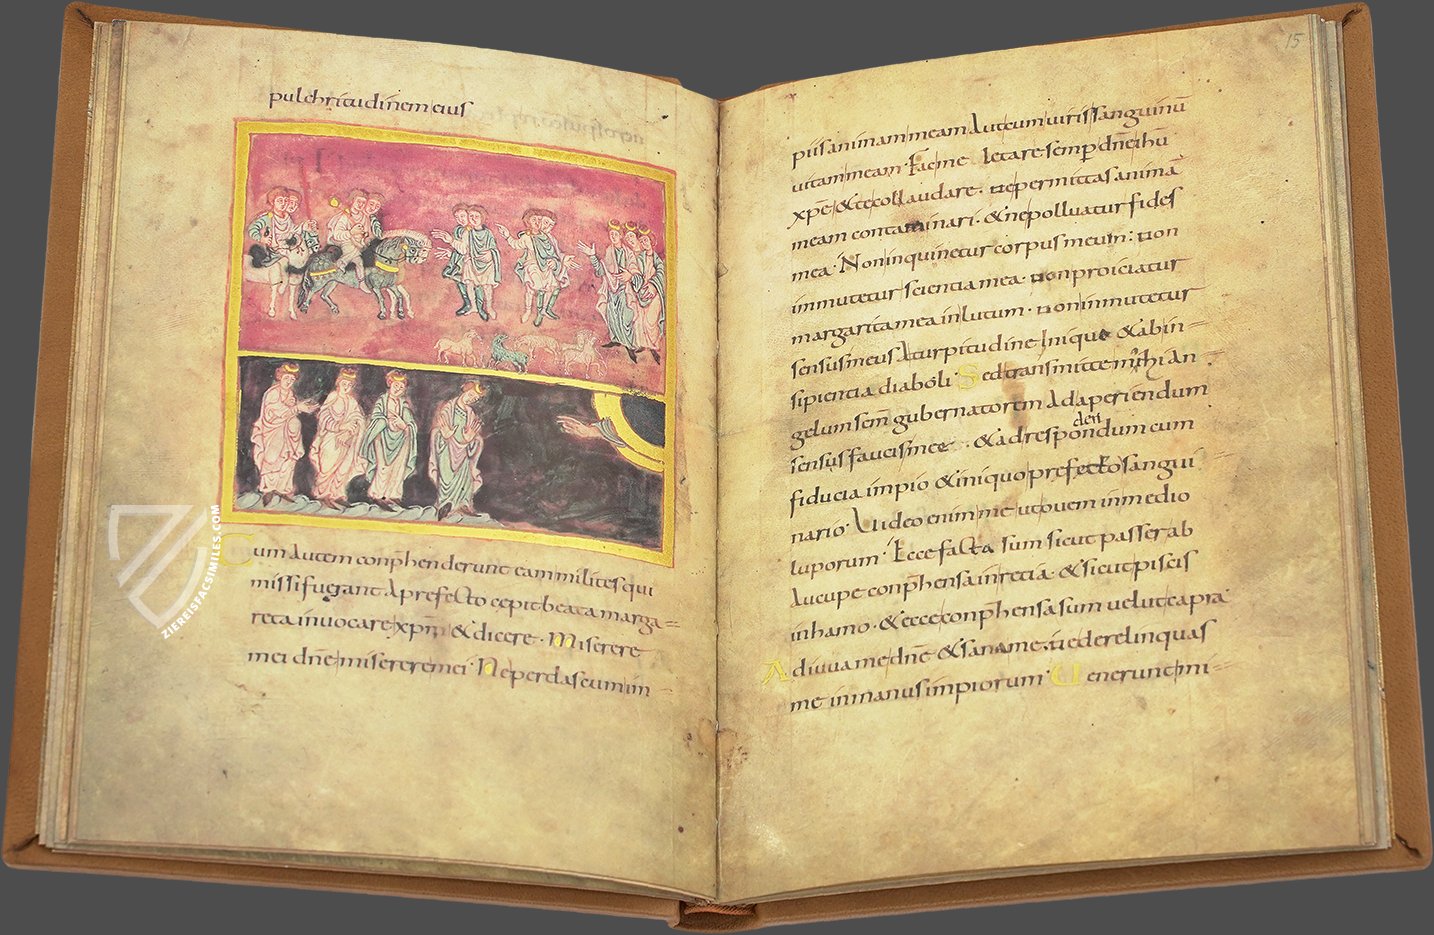 pulchritudinem eius
Cum autem conp̄henderunt eam milites qui
missi fuerant A prefecto cepit beata marga=
reta invocare xpm̄ & dicere · Miserere
mei dn̄e miserere mei · Ne perdas cum im
15
piis animam meam Aut cum viris sanguinū
vitam meam · Fac me letare semp dn̄e ihū
xp̄e & te collaudare · Ne permittas animā
meam contaminari · & ne polluatur fides
mea · Non inquinetur corpus meum : Non
immutetur scientia mea · Non proiciatur
margarita mea in lutum · Non inmutetur
sensus meus A turpitudine Inique & ab in-
sipientia diaboli · Sed transmitte mihi an
gelum sem̄ gubernatorem Ad aperiendum
den
sensus faucis mee · & ad respondum cum
fiducia impio & iniquo prefecto sangui
nario · Video enim me ut ovem in medio
luporum · Ecce facta sum sicut passer ab
Aucupe conp̄hensa in retia · & sicut piscis
in hamo · & ecce conp̄hensa sum velut capra
Adiuva me dn̄e & sana me · Ne derelinquas
me in manus impiorum · Venerunt mi-
ZIEREISFACSIMILES.COM